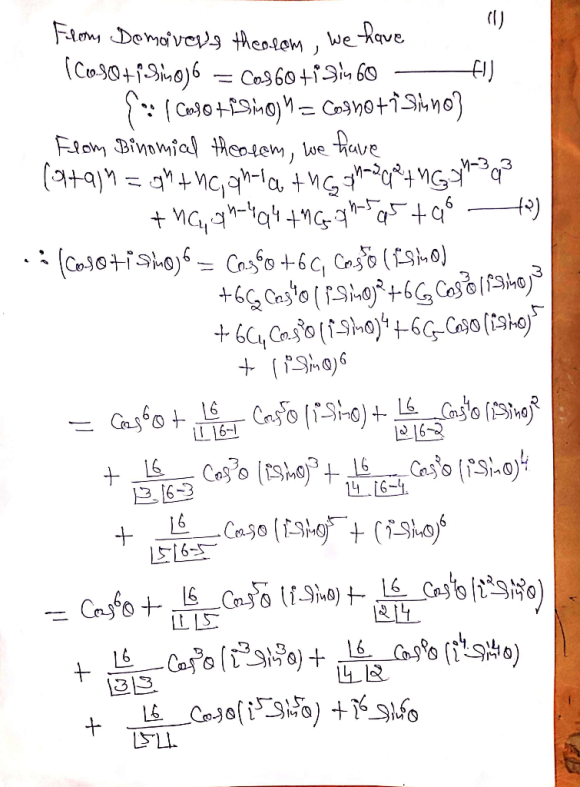 (1)
From Demoiver's theorem, we have
(Cosθ+iSinθ)⁶ = Cos6θ+iSin6θ ——(1)
{∵ (Cosθ+iSinθ)ⁿ = Cosnθ+iSinnθ}
From Binomial theorem, we have
(x+a)ⁿ = xⁿ+nC₁xⁿ⁻¹a+nC₂xⁿ⁻²a²+nC₃xⁿ⁻³a³
+nC₄xⁿ⁻⁴a⁴+nC₅xⁿ⁻⁵a⁵+a⁶ ——(2)
∴ (Cosθ+iSinθ)⁶ = Cos⁶θ+6C₁ Cos⁵θ(iSinθ)
+6C₂Cos⁴θ(iSinθ)²+6C₃Cos³θ(iSinθ)³
+6C₄Cos²θ(iSinθ)⁴+6C₅Cosθ(iSinθ)⁵
+(iSinθ)⁶
= Cos⁶θ + |6/|1|6-1 Cos⁵θ(iSinθ) + |6/|2|6-2 Cos⁴θ(iSinθ)²
+ |6/|3|6-3 Cos³θ(iSinθ)³ + |6/|4|6-4 Cos²θ(iSinθ)⁴
+ |6/|5|6-5 Cosθ(iSinθ)⁵ + (iSinθ)⁶
= Cos⁶θ + |6/|1|5 Cos⁵θ(iSinθ) + |6/|2|4 Cos⁴θ(i²Sin²θ)
+ |6/|3|3 Cos³θ(i³Sin³θ) + |6/|4|2 Cos²θ(i⁴Sin⁴θ)
+ |6/|5|1 Cosθ(i⁵Sin⁵θ) + i⁶Sin⁶θ